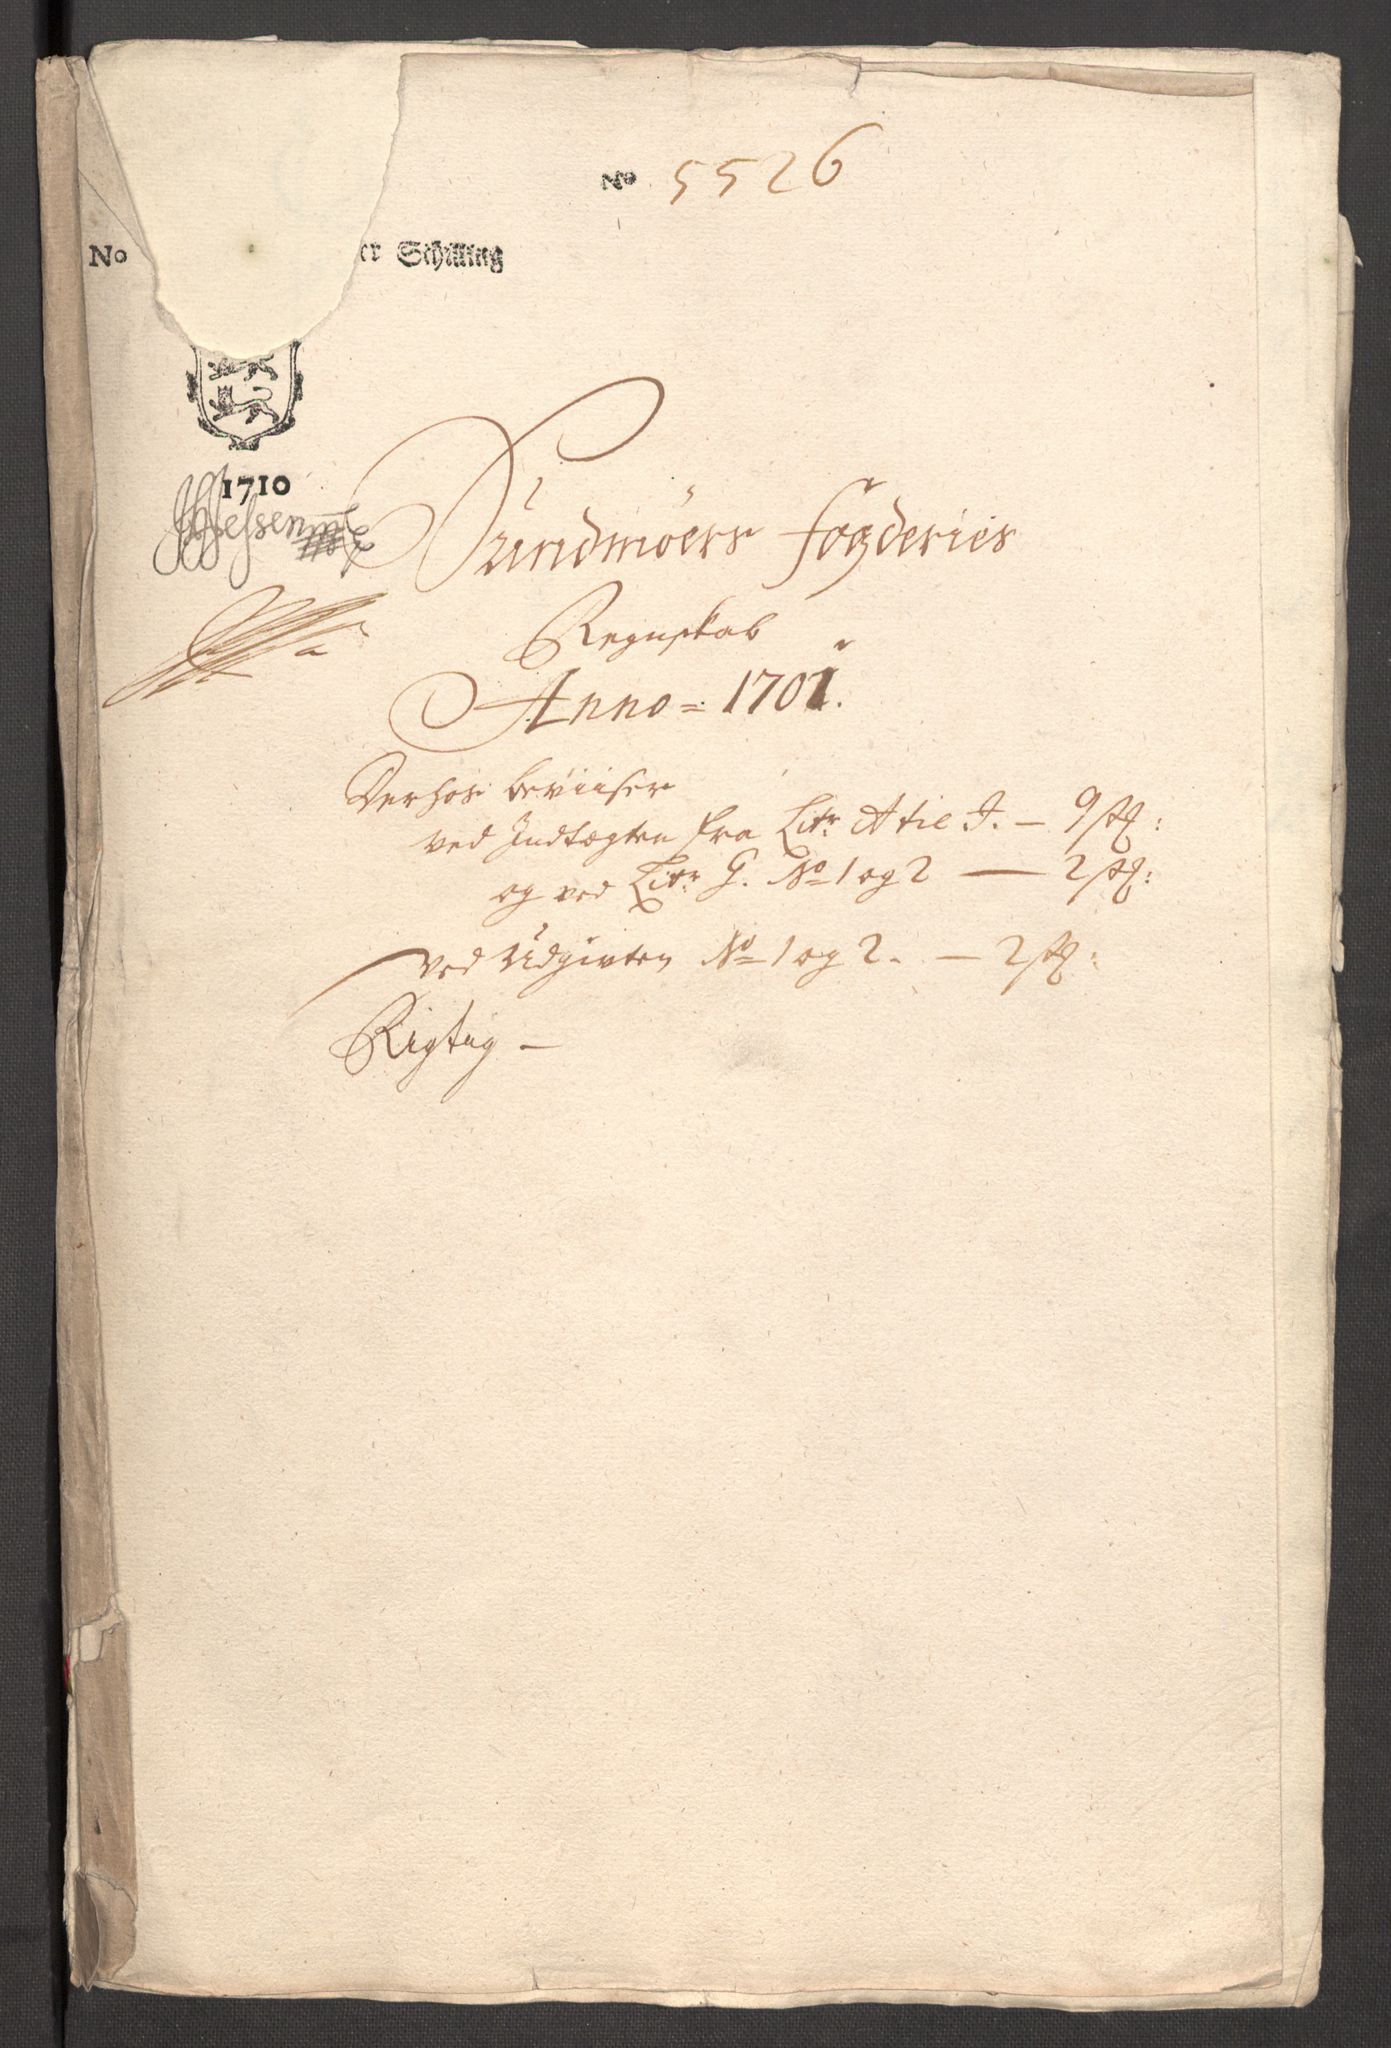 No 5526
No er Schilling
1710
Sundmöers fogderies
Regnskab
Anno = 1701.
Derhos beviiser
ved Indtægten fra Litr A til I. — 9 st:
og ved Litr G. No 1 og 2 — 2 st:
ved Udgivten No 1 og 2. — 2 st:
Rigtig —